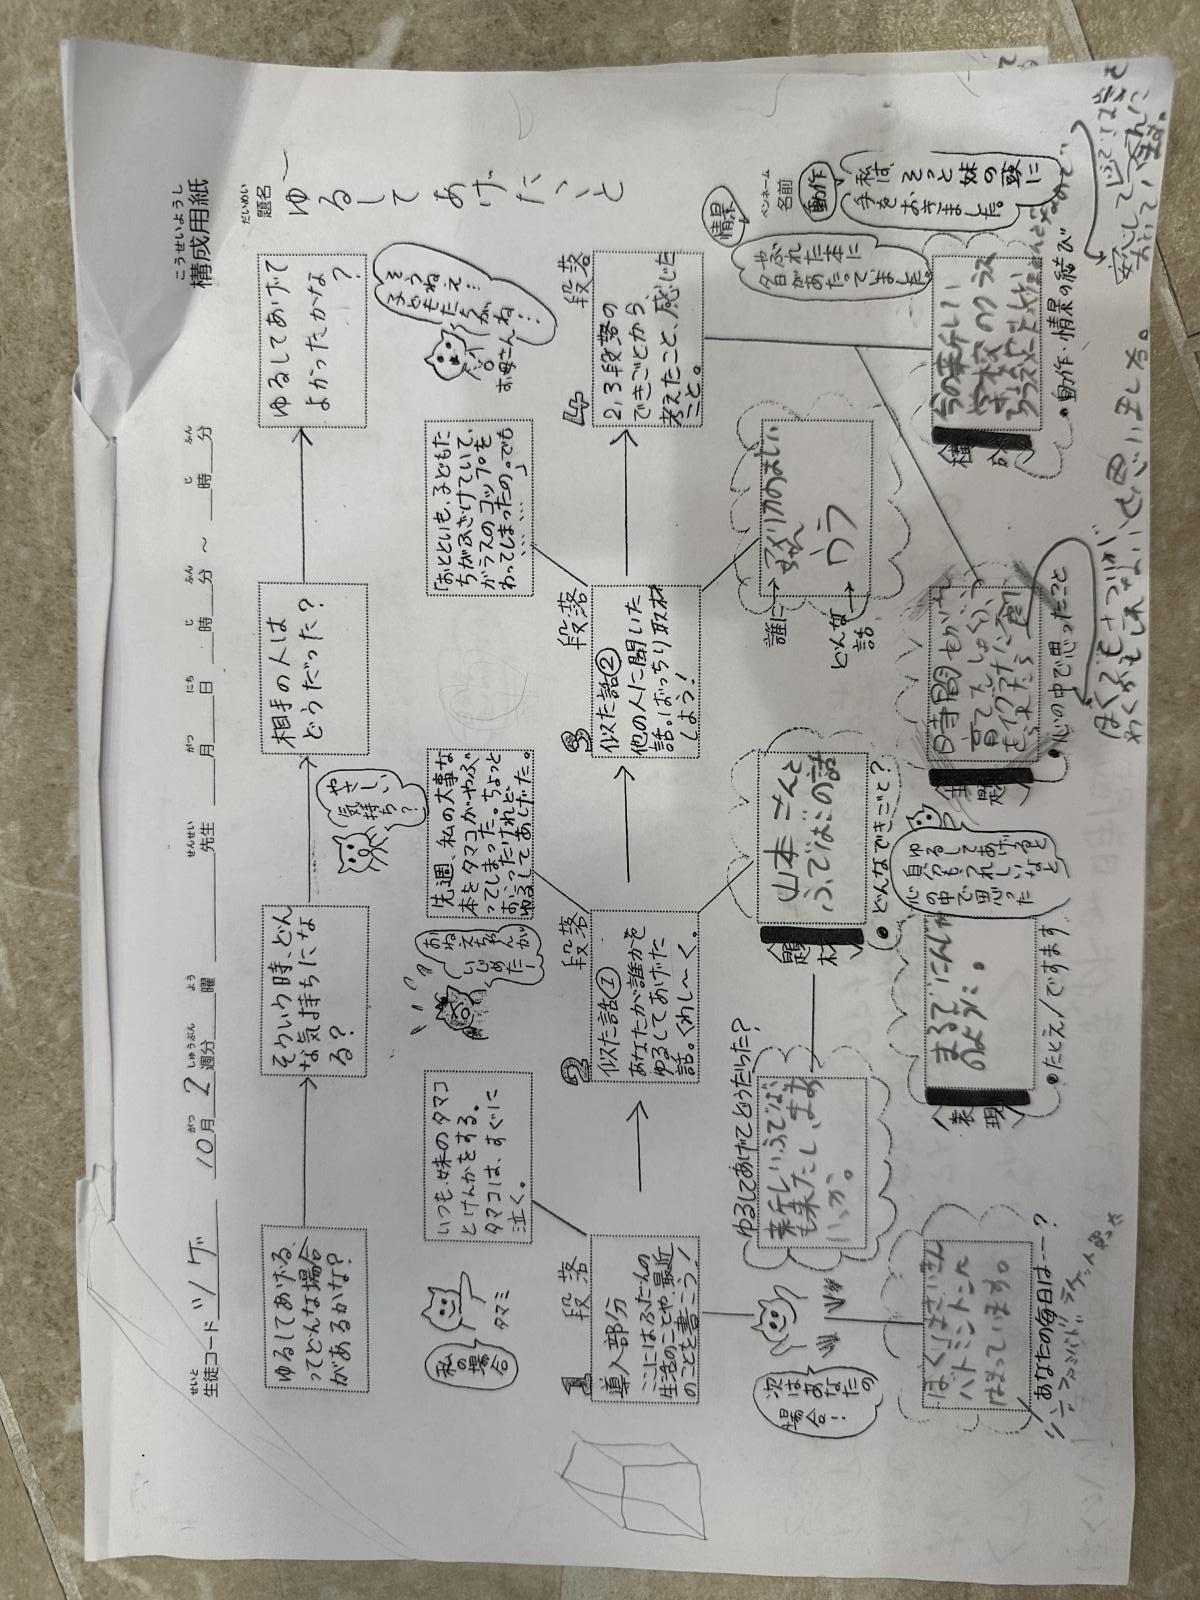 こうせいようし
構成用紙
だいめい
題名
ゆるしてあげたこと
ペンネーム
名前
せいと
生徒コード
ツゲ
10月2週分 曜 先生 月 日 時 分 ～ 時 分
がつ しゅうぶん よう せんせい がつ にち じ ふん じ ふん
ゆるしてあげる
ってどんな場合
があるかな?
そういう時、どん
な気持ちにな
る?
相手の人は
どうだった?
ゆるしてあげて
よかったかな
?
私の
場合
タマミ
いつも、妹のタマコ
とけんかをする。
タマコは、すぐに
泣く。
おね
えちゃんが
いじ
めたー
やさしい
気持
ち?
先週、私の大事な
本をタマコがやぶ
ってしまった。ちょっと
おこったけれど
ゆるしてあげた。
「おとといも、子どもた
ちがふざけていて、
ガラスのコップを
わってしまったの。でも
……」
そ
うねえ…
子どもたちがね…
お母さん
1
段落
導入部分
ここにはふだんの
生活のことや最近
のことを書こう!
2
段落
似た話①
あなたが誰かを
ゆるしてあげた
話。くわし～く。
3
段落
似た話②
他の人に聞いた
話。ばっちり取材
しよう!
4
段落
2,3段落の
できごとから、
考えたこと、感じた
こと。
次は
あなたの
場合!
あなたの毎日は…?
ゆるしてあげてどうだった?
新しいふでばこ
も来たしまあ
いっか。
題材
山本さんと
ふでばこの話
どんなできごと?
誰に
どんな
話
ウラ
表現
まるでにんじゃ
のように。
たとえ/ですます
自分もうれしいなと
心の中で思った
ゆるしてあげると
主題
心の中で思ったこと
情景
やぶれた本に
夕日があたっていました。
動作
私は、そっと妹の頭に
手をおきました。
構成
動作・情景の結び